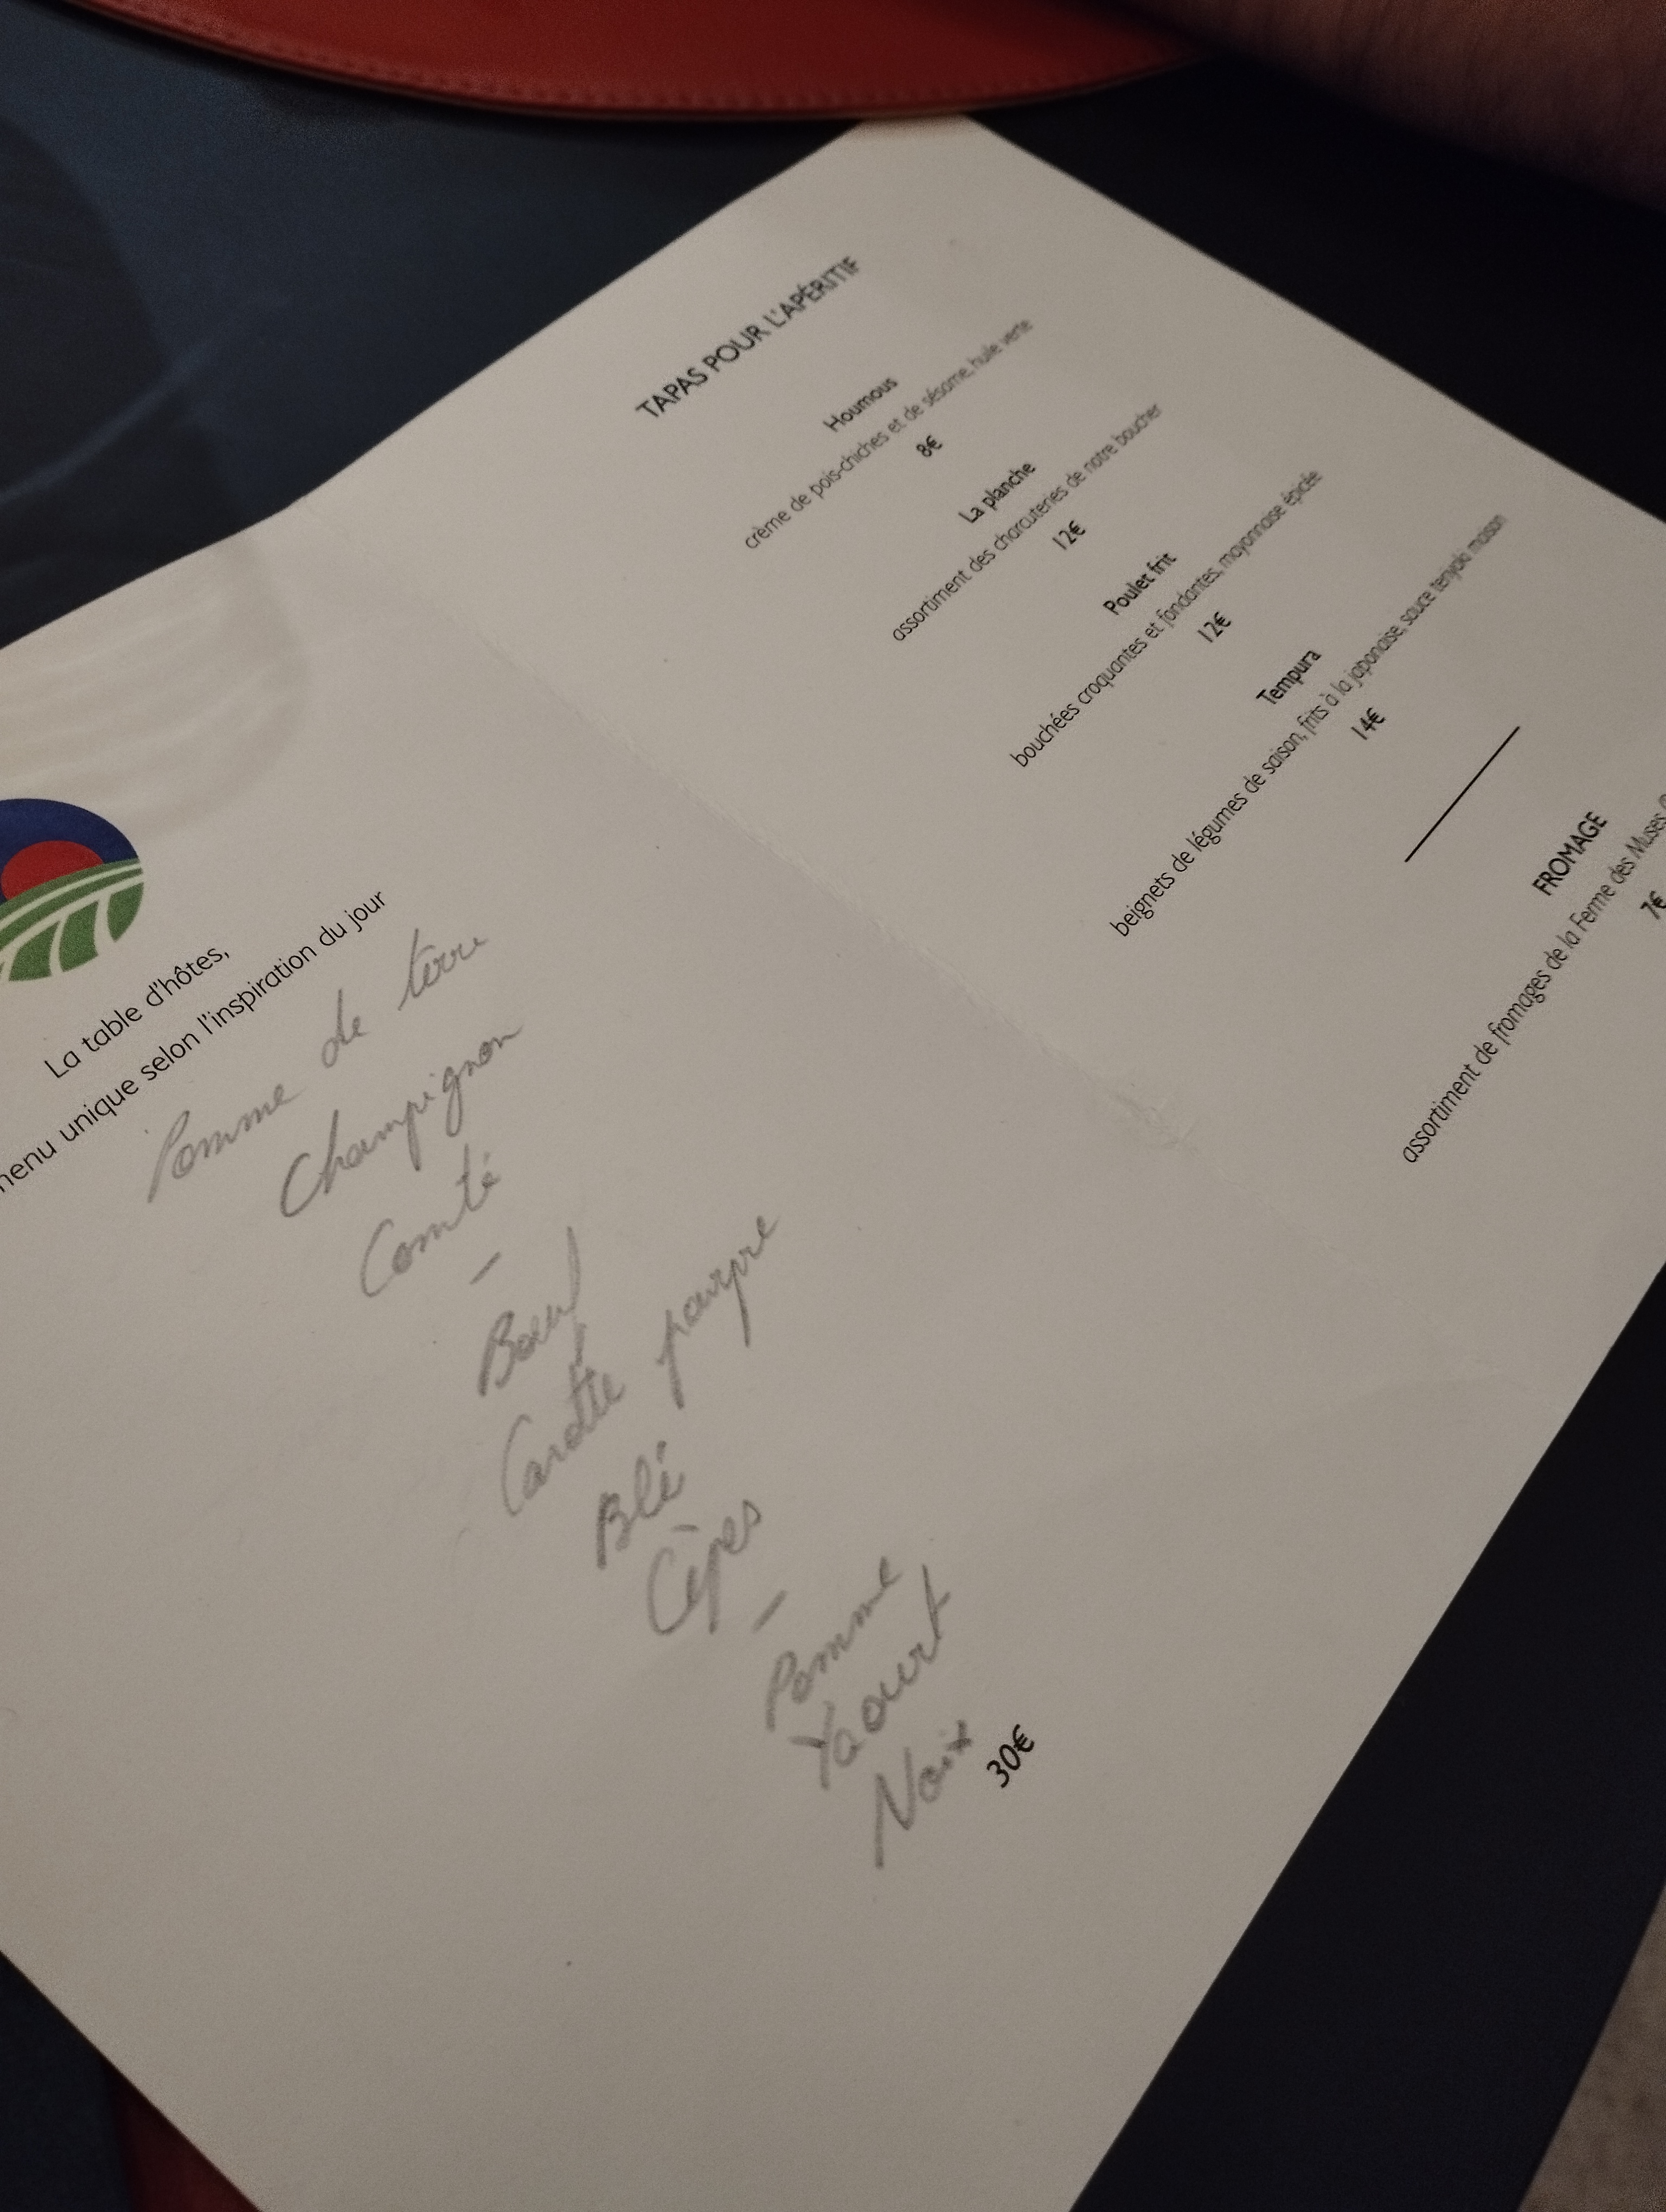 La table d'hôtes,
menu unique selon l'inspiration du jour
Pomme de terre
Champignon
Comté
-
Bœuf
Carotte pourpre
Blé
Cèpes
-
Pomme
Yaourt
Noix
30€
TAPAS POUR L'APÉRITIF
Houmous
crème de pois-chiches et de sésame, huile verte
8€
La planche
assortiment des charcuteries de notre boucher
12€
Poulet frit
bouchées croquantes et fondantes, mayonnaise épicée
12€
Tempura
beignets de légumes de saison, frits à la japonaise, sauce teriyaki maison
14€
FROMAGE
assortiment de fromages de la Ferme des Muses
7€